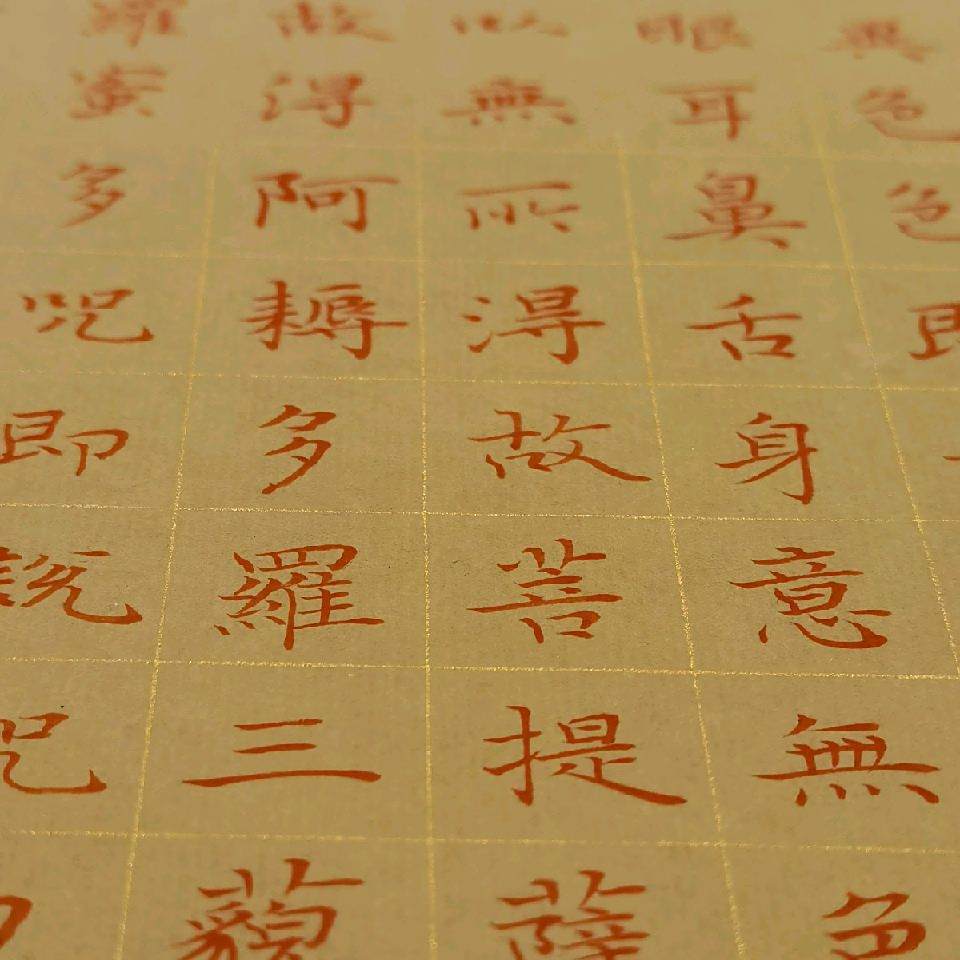 異色色即
眼耳鼻舌身意無色
以無所得故菩提薩
故得阿耨多羅三藐
羅蜜多咒即說咒